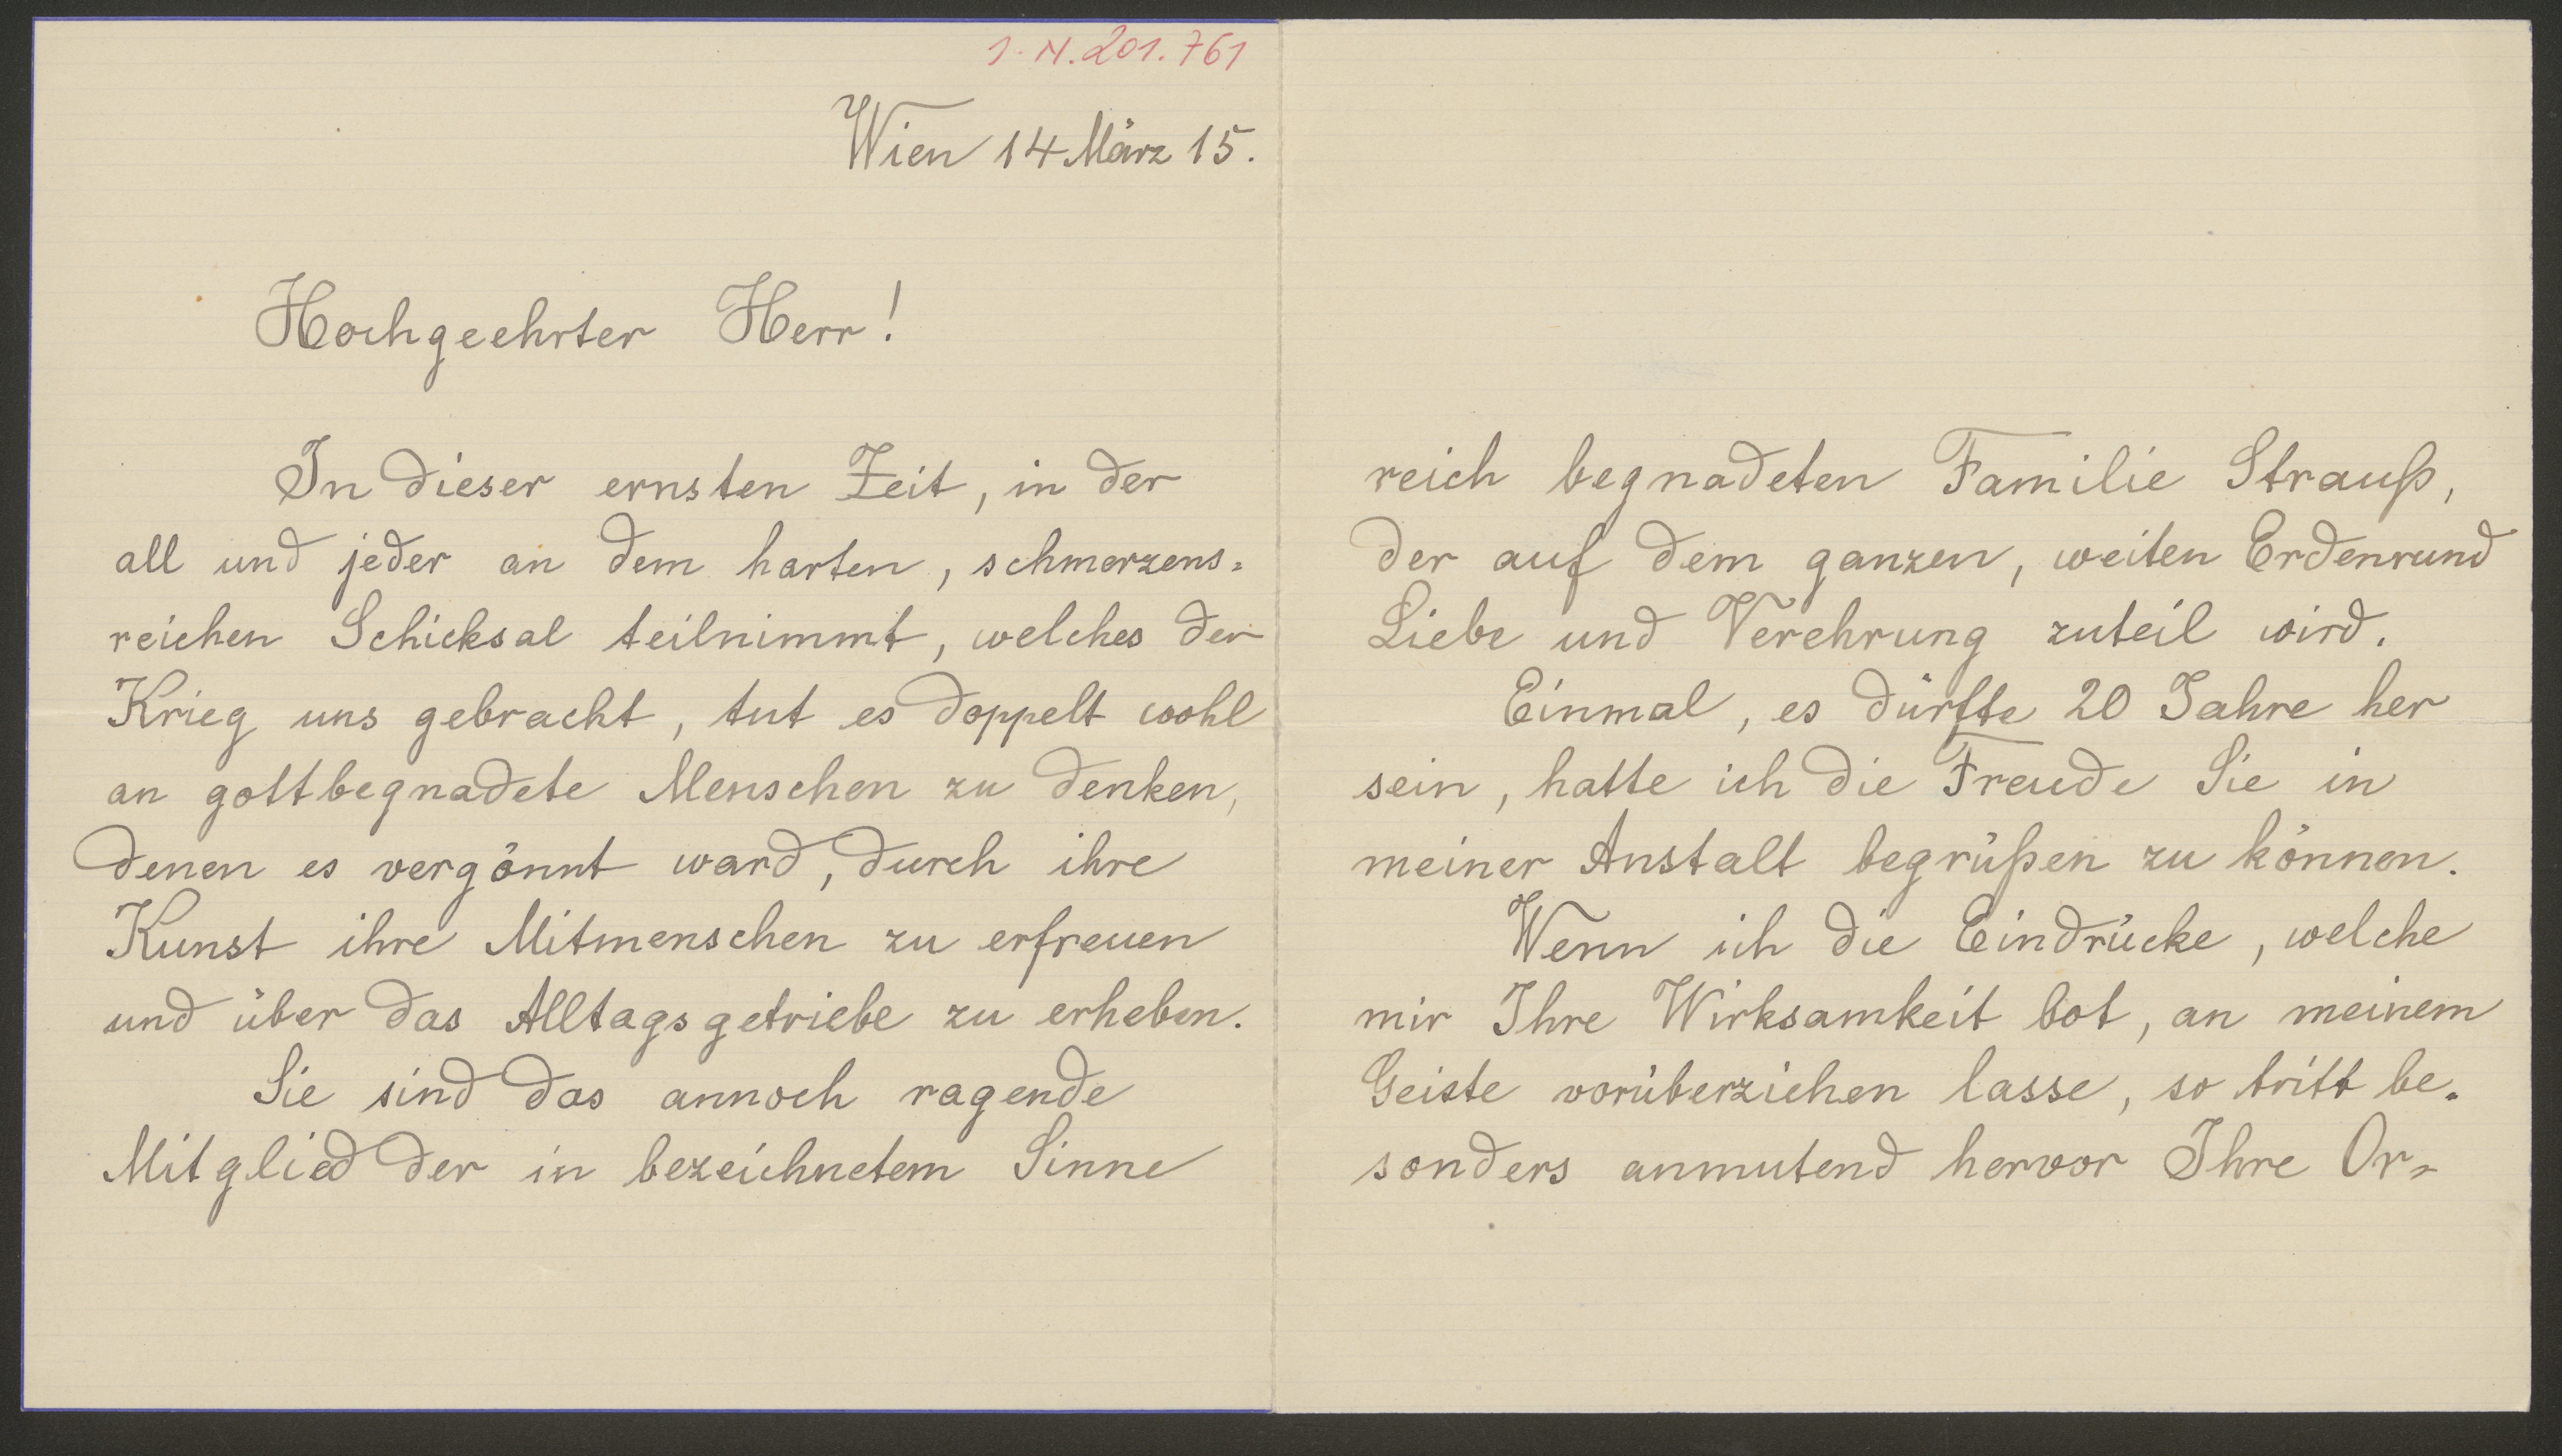 I. N. 201.761
Wien 14 März 15.
Hochgeehrter Herr!
In dieser ernsten Zeit, in der
all und jeder an dem harten, schmerzens-
reichen Schicksal teilnimmt, welches der
Krieg uns gebracht, tut es doppelt wohl
an gottbegnadete Menschen zu denken,
denen es vergönnt ward, durch ihre
Kunst ihre Mitmenschen zu erfreuen
und über das Alltagsgetriebe zu erheben.
Sie sind das annoch ragende
Mitglied der in bezeichnetem Sinne
reich begnadeten Familie Strauß,
der auf dem ganzen, weiten Erdenrund
Liebe und Verehrung zuteil wird.
Einmal, es dürfte 20 Jahre her
sein, hatte ich die Freude Sie in
meiner Anstalt begrüßen zu können.
Wenn ich die Eindrücke, welche
mir Ihre Wirksamkeit bot, an meinem
Geiste vorüberziehen lasse, so tritt be-
sonders anmutend hervor Ihre Or-